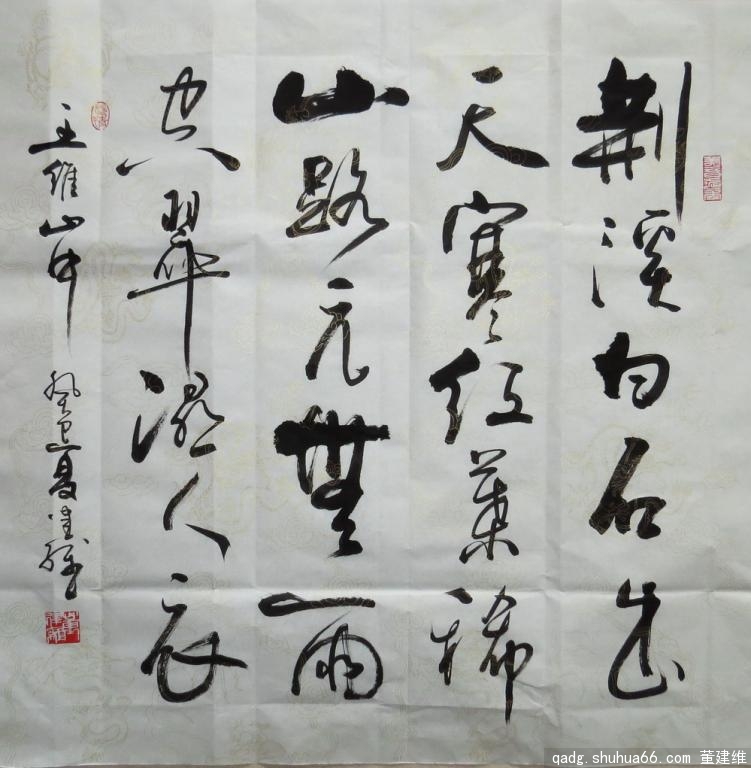 荆溪白石出
天寒红葉稀
山路元無雨
空翠濕人衣
王維山中
癸巳夏建維
qadg.shuhua66.com 董建维